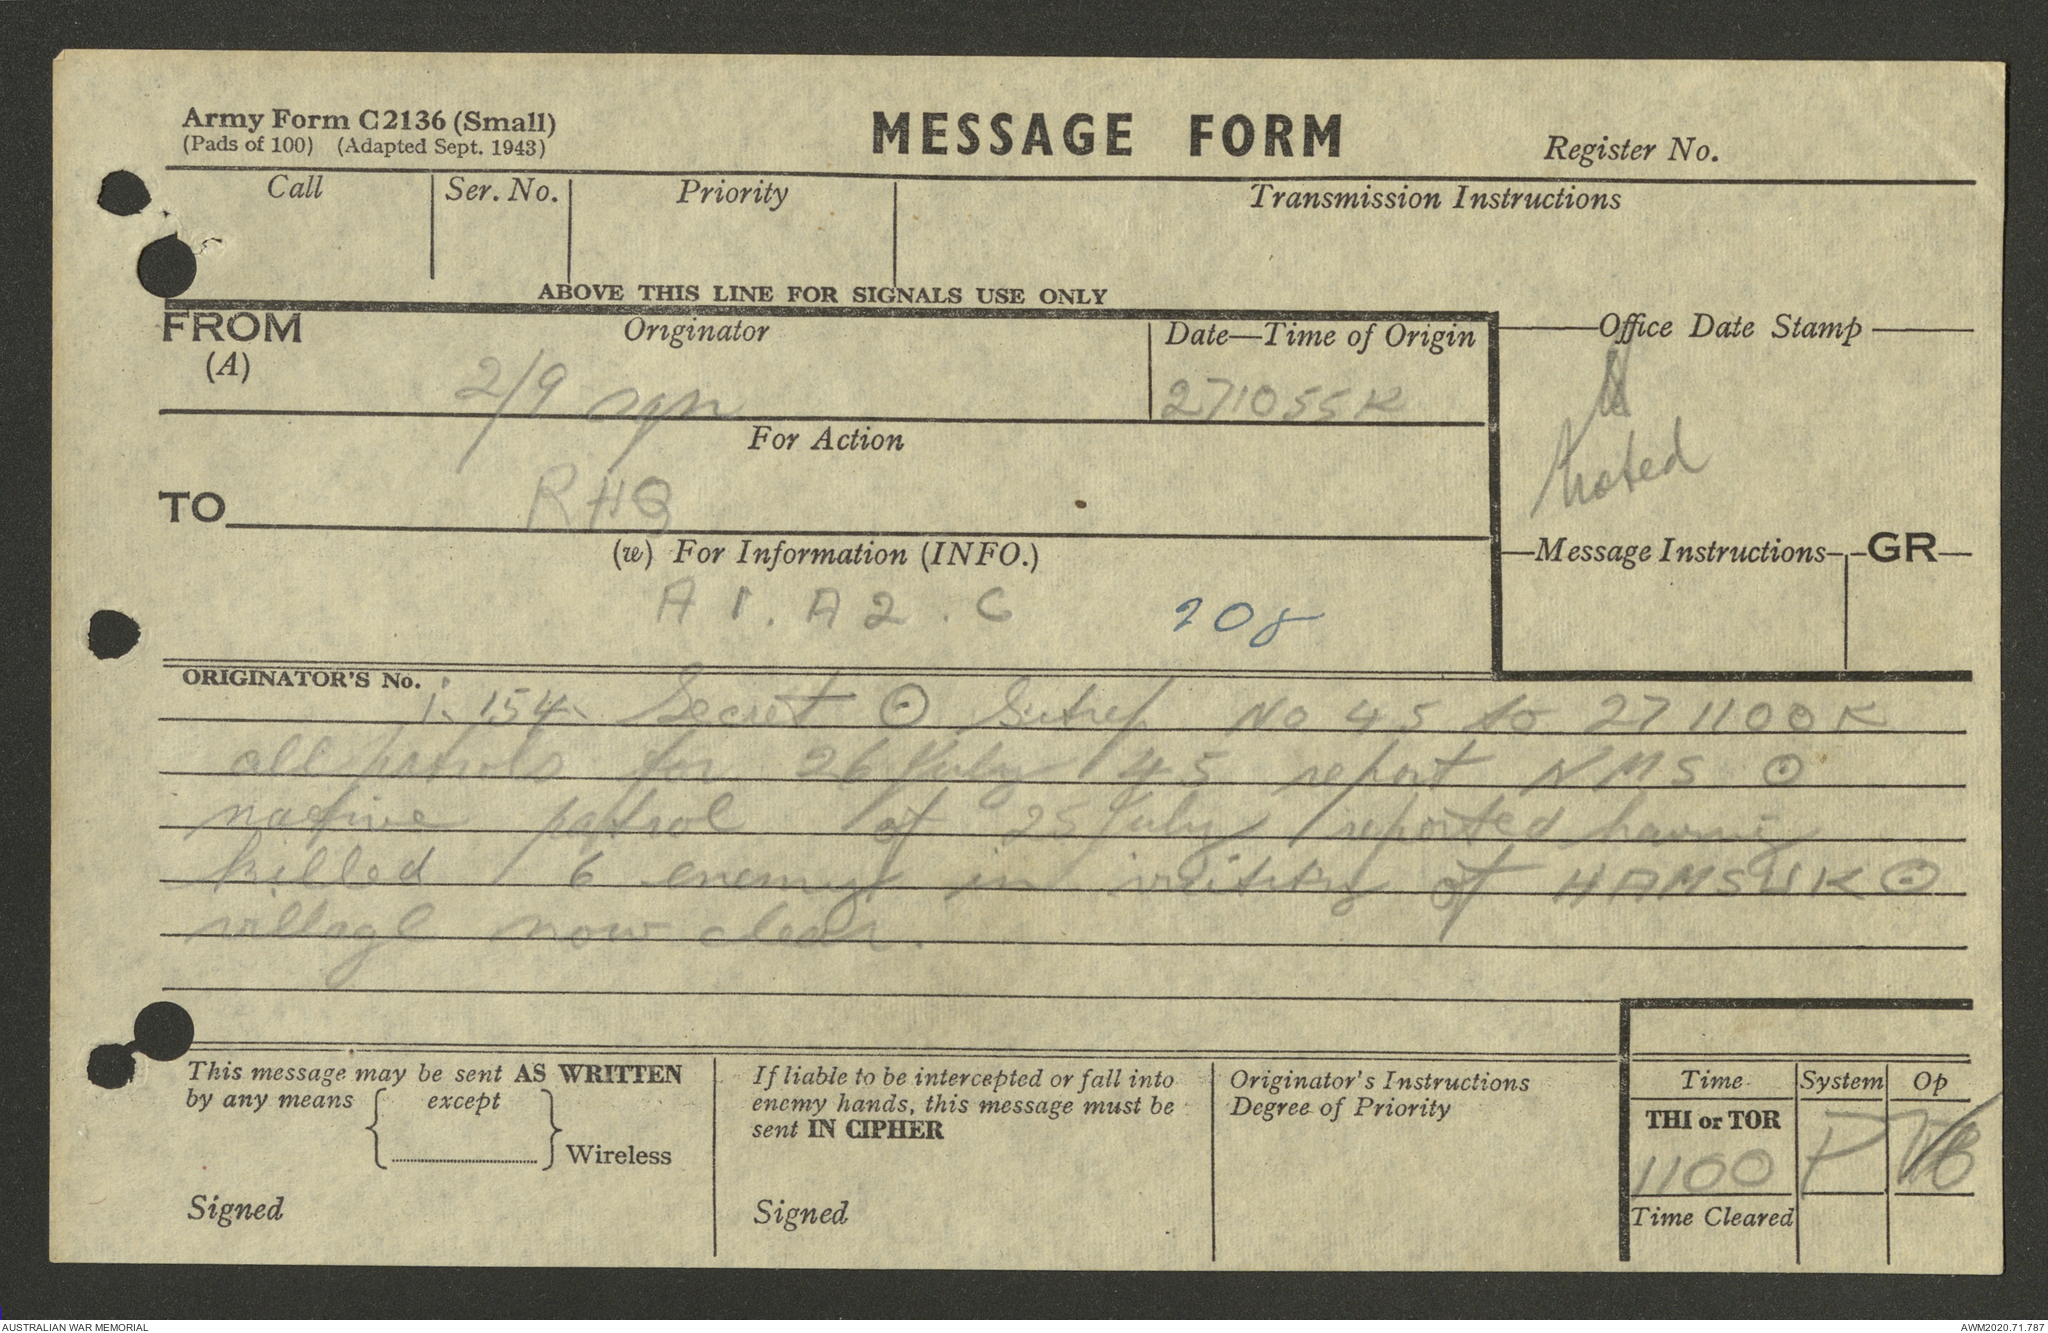 Army Form C2136 (Small)
(Pads of 100) (Adapted Sept. 1943)
MESSAGE FORM
Register No.
Call
Ser. No.
Priority
Transmission Instructions
ABOVE THIS LINE FOR SIGNALS USE ONLY
FROM
(A)
Originator
2/9 sqn
Date—Time of Origin
271055K
Office Date Stamp
Noted
For Action
TO
RHQ
(w) For Information (INFO.)
A1. A2. C
208
Message Instructions
GR
ORIGINATOR'S No.
i. 154. Secret ⊙ Sitrep No 45 to 271100K
all patrols for 26 July 45 report NMS ⊙
native patrol of 25 July reported having
killed 6 enemy in vicinity of HAMSUK ⊙
village now clear.
This message may be sent AS WRITTEN
by any means
except
Wireless
Signed
If liable to be intercepted or fall into
enemy hands, this message must be
sent IN CIPHER
Signed
Originator's Instructions
Degree of Priority
Time
System
Op
THI or TOR
1100
P
Time Cleared
AUSTRALIAN WAR MEMORIAL
AWM2020.71.787